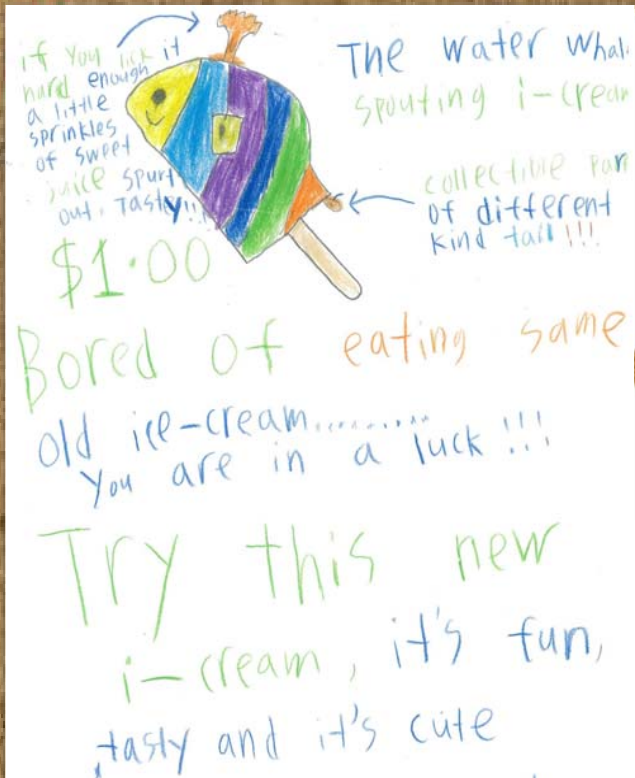 if you lick it
hard enough
a little
sprinkles
of sweet
juice spurt
out. Tasty!!
The water whal
spouting i-crean
collectible par
of different
kind tail!!!
$1.00
Bored of eating same
old ice-cream.........
You are in a luck !!!
Try this new
i-cream, it's fun,
tasty and it's cute